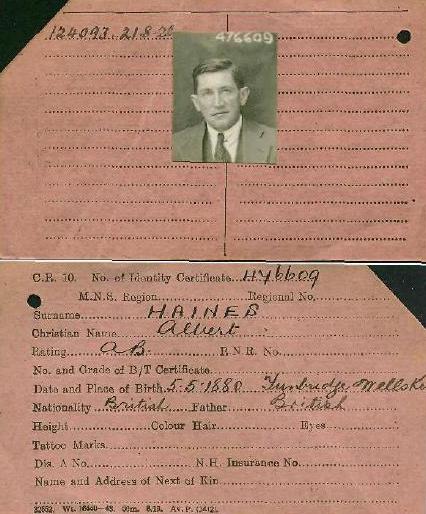 476609
124093. 218.20
C.R. 10. No. of Identity Certificate 476609
M.N.S. Region Regional No.
Surname HAINES
Christian Name Albert
Rating A.B. R.N.R. No.
No. and Grade of B/T Certificate
Date and Place of Birth 5.5.1880 Tunbridge Wells
Nationality British Father British
Height Colour Hair Eyes
Tattoo Marks
Dis. A No. N.H. Insurance No.
Name and Address of Next of Kin